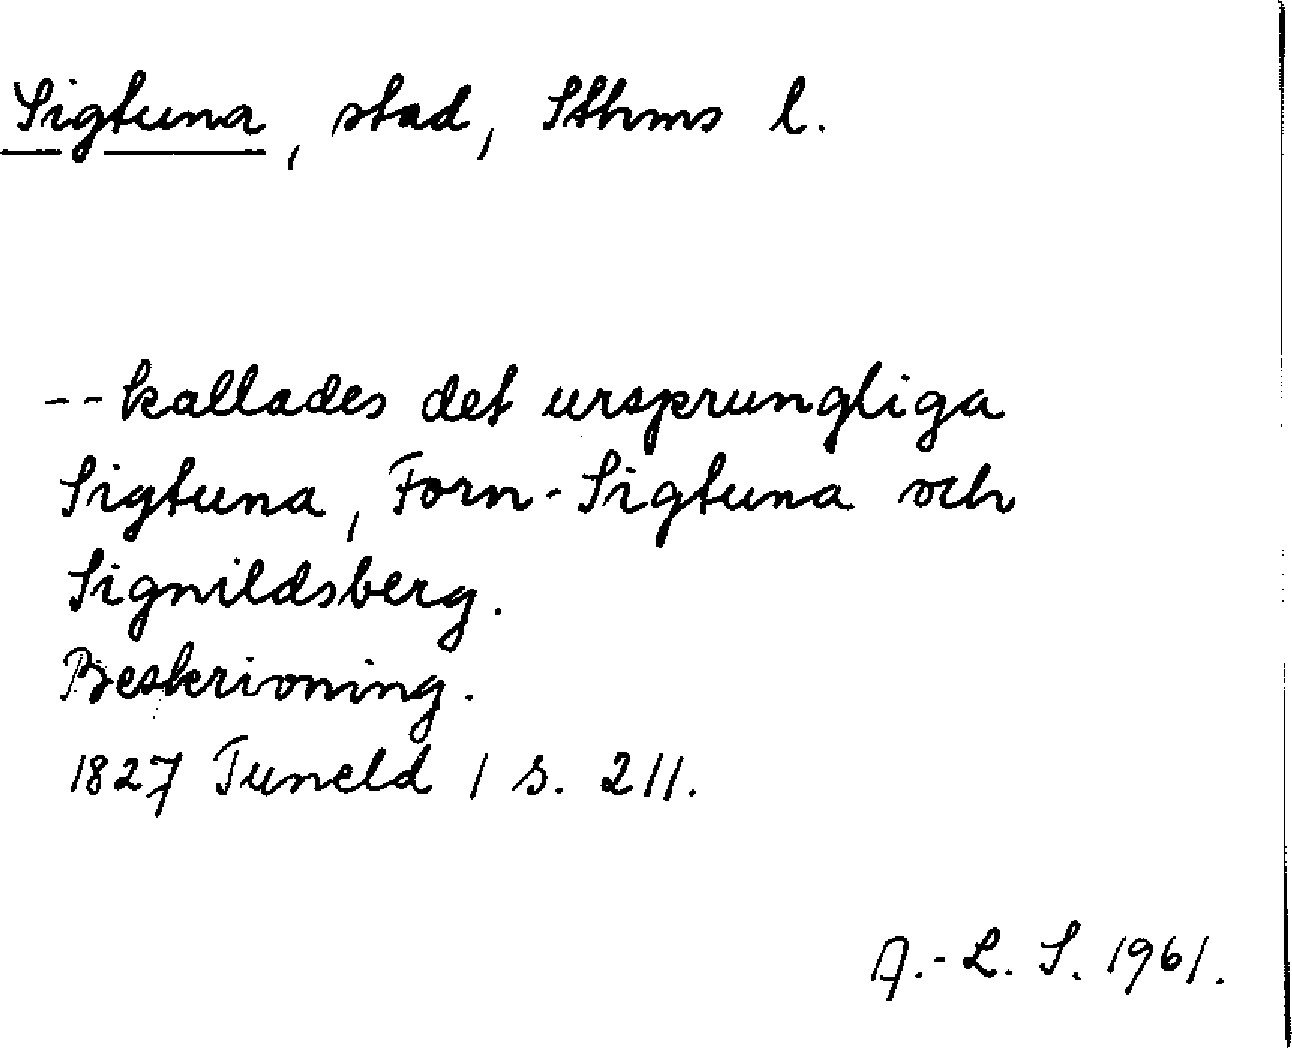 Sigtuna, stad, Sthms l.
-- kallades det ursprungliga
Sigtuna, Forn-Sigtuna och
Signildsberg.
Beskrivning.
1827 Tuneld I s. 211.
A.-L. S. 1961.